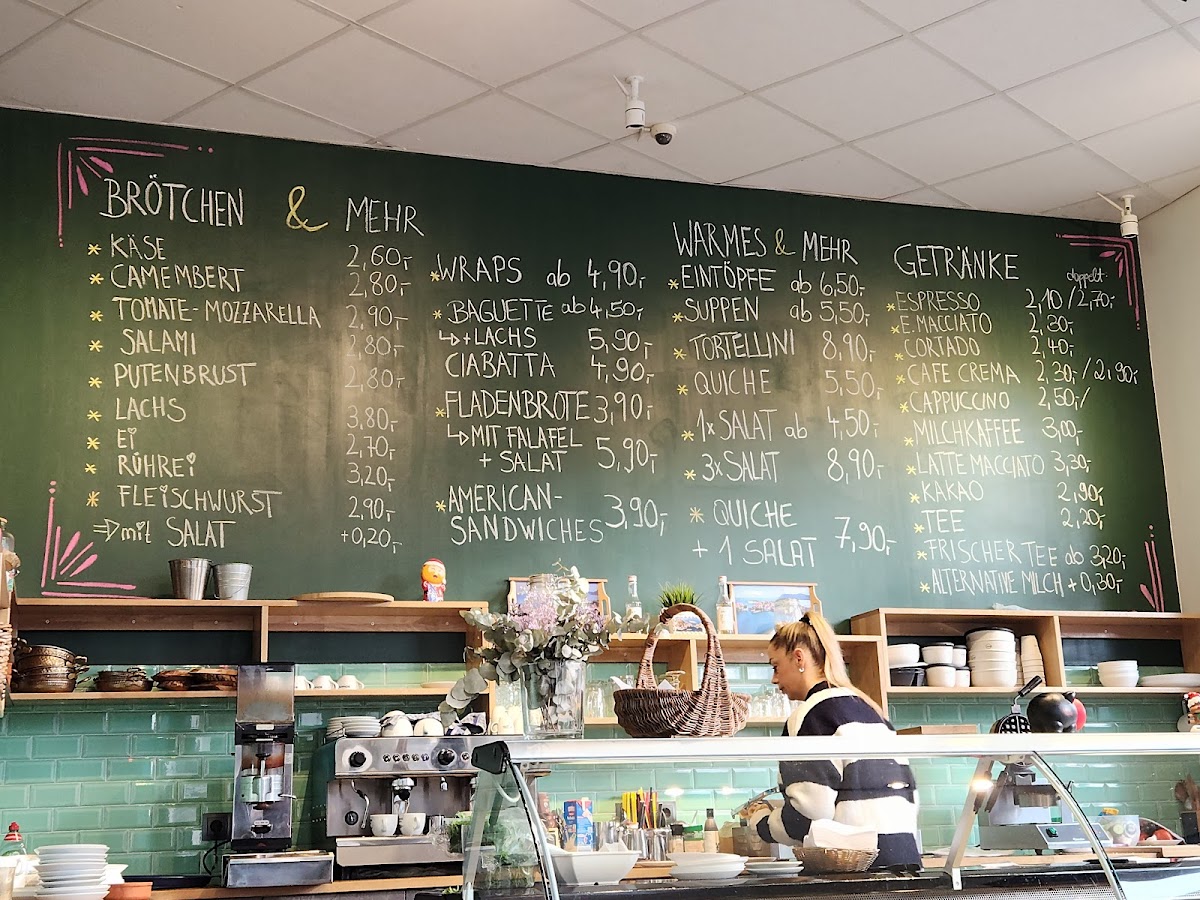 BRÖTCHEN & MEHR
* KÄSE 2,60,-
* CAMEMBERT 2,80,-
* TOMATE-MOZZARELLA 2,90,-
* SALAMI 2,80,-
* PUTENBRUST 2,80,-
* LACHS 3,80,-
* Ei 2,70,-
* RÜHREi 3,20,-
* FLEiSCHWURST 2,90,-
⇒ mit SALAT +0,20,-
* WRAPS ab 4,90,-
* BAGUETTE ab 4,50,-
↳ + LACHS 5,90,-
CIABATTA 4,90,-
* FLADENBROTE 3,90,-
↳ MIT FALAFEL
+ SALAT 5,90,-
* AMERICAN-
SANDWICHES 3,90,-
WARMES & MEHR
* EINTÖPFE ab 6,50,-
* SUPPEN ab 5,50,-
* TORTELLINI 8,90,-
* QUICHE 5,50,-
* 1x SALAT ab 4,50,-
* 3x SALAT 8,90,-
* QUICHE
+ 1 SALAT 7,90,-
GETRÄNKE
doppelt
* ESPRESSO 2,10/2,70,-
* E. MACCIATO 2,30,-
* CORTADO 2,40,-
* CAFE CREMA 2,30,-/2,90,-
* CAPPUCCINO 2,50,-/
* MILCHKAFFEE 3,00,-
* LATTE MACCIATO 3,30,-
* KAKAO 2,90,-
* TEE 2,20,-
* FRISCHER TEE ab 3,20,-
* ALTERNATIVE MILCH + 0,30,-